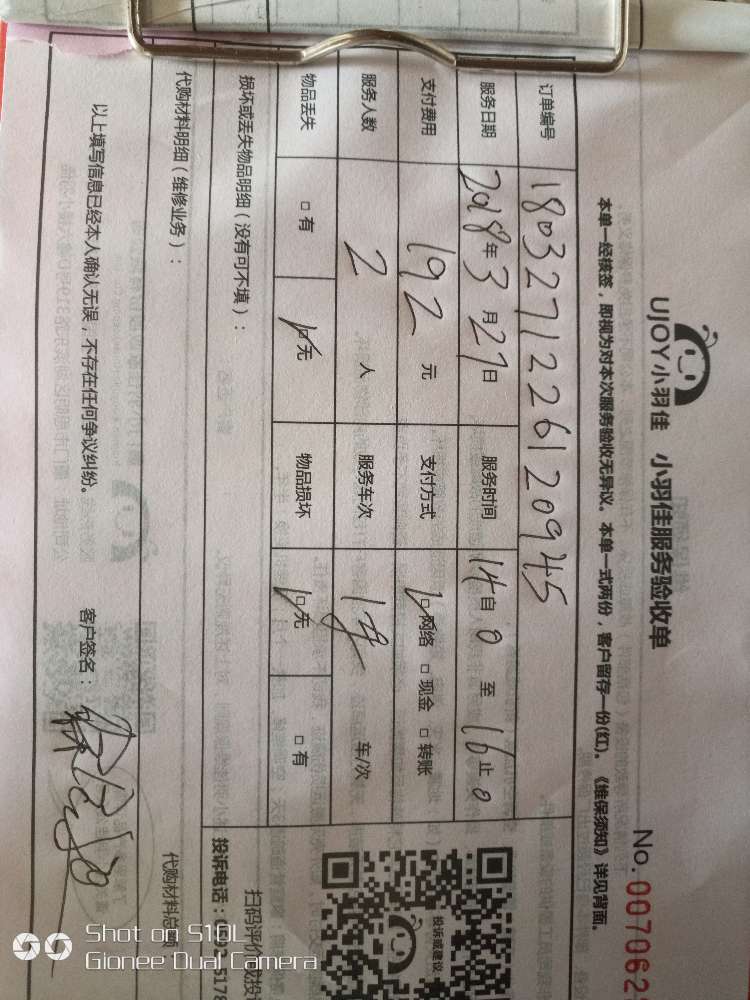 UJOY小羽佳 小羽佳服务验收单
No. 007062
本单一经核签，即视为对本次服务验收无异议。本单一式两份，客户留存一份(红)。《维保须知》详见背面。
订单编号 1803271226120945
服务日期 2018年3月27日 服务时间 14自0至16止0
支付费用 192元 支付方式 ☑网络 □现金 □转账
服务人数 2人 服务车次 车/次
物品丢失 □有 ☑无 物品损坏 ☑无 □有
损坏或丢失物品明细（没有可不填）：
投诉或建议
扫码评价或投
投诉电话：0592-5178
代购材料明细（维修业务）： 代购材料总额
以上填写信息已经本人确认无误，不存在任何争议纠纷。 客户签名：
Shot on S10L
Gionee Dual Camera